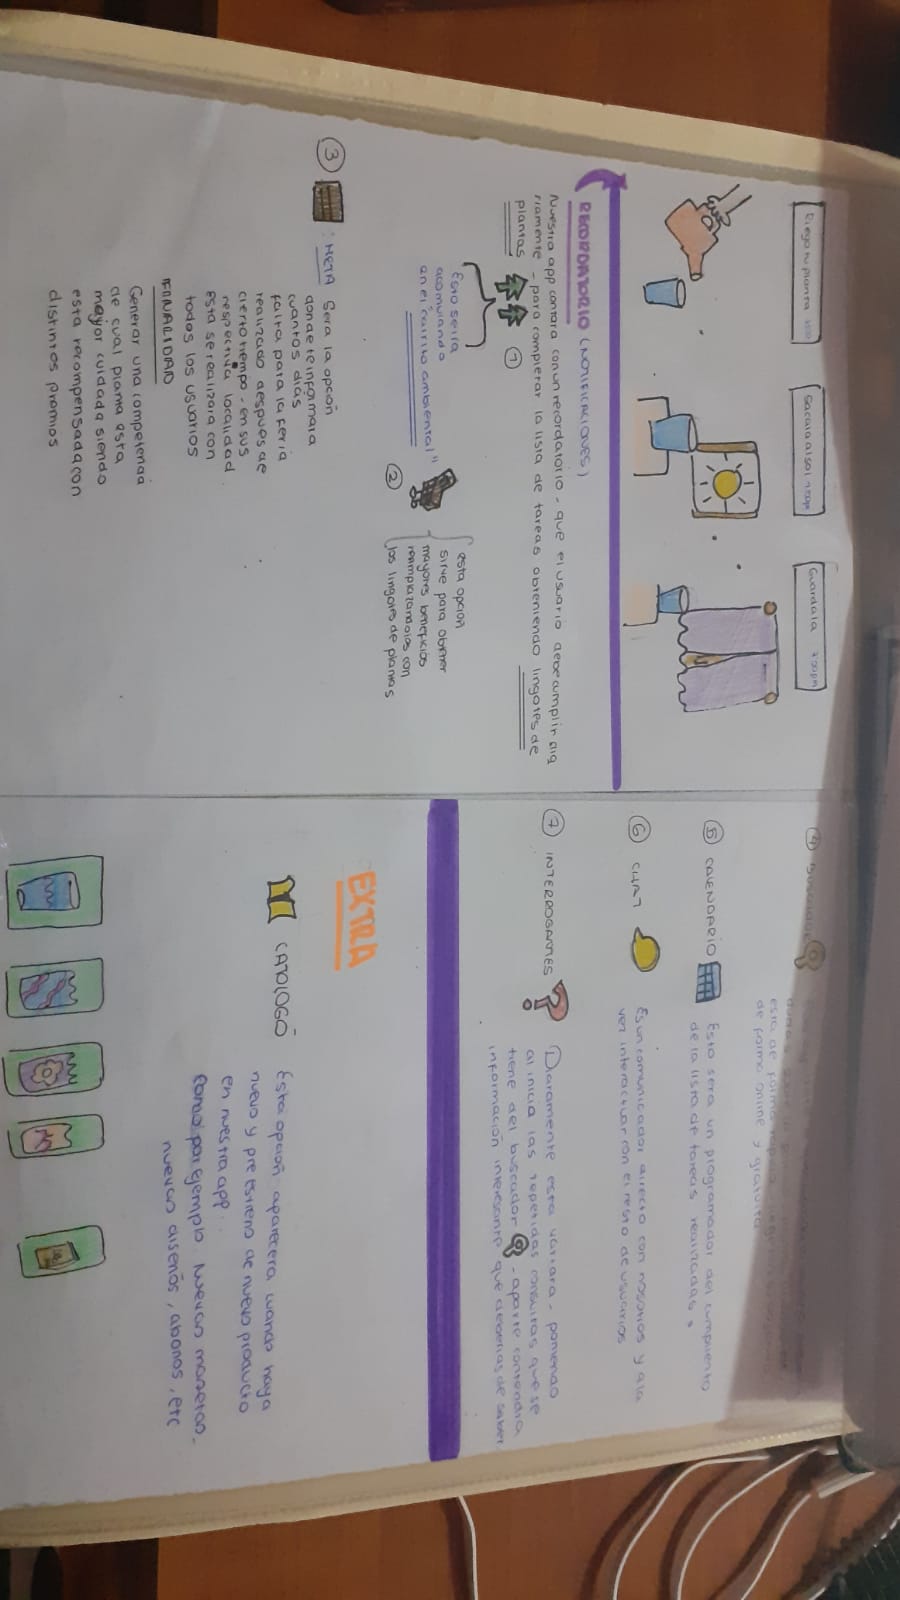 Riega tu planta
Sacala al sol 1:00pm
Guardala 2:00pm
RECORDATORIO (NOTIFICACIONES)
Nuestra app contara con un recordatorio - que el usuario debe cumplir dia
riamente - para completar la lista de tareas obteniendo lingotes de
plantas
1
Esto seria
acomulando
en el "carrito ambiental"
2
esta opcion
sirve para obtener
mayores beneficios
reemplazandolos con
los lingotes de plantas
3 : META Sera la opcioñ
donde te informara
cuantos diás
falta para la feria
realizado despues de
cierto tiempo - en sus
respectiva localidad
Esta se realizara con
todos los usuarios
FINALIDAD
Generar una competencia
de cual planta esta
mejor cuidada siendo
esta recompensada con
distintos premios
4 BUSCADOR
esta de forma
de forma online y gratuita
5 CALENDARIO Esto sera un programador del cumpliento
de la lista de tareas realizadas.
6 CHAT Es un comunicador directo con nosotros y a la
vez interactuar con el resto de usuarios
7 INTERROGANTES Diaramente esta variara - poniendo
al inicia las repetidas consultas que se
tiene del buscador - aparte contendra
información interesante que deberias de saber
EXTRA
CATOLOGÓ Esta opcioñ aparecera cuando haya
nuevo y pre estreno de nuevo producto
en nuestra app.
Como por ejemplo. Nuevas masetas.
nuevos diseños, abonos, etc